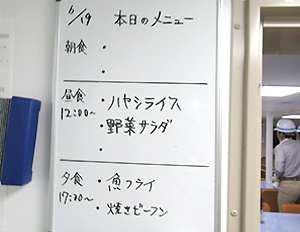 6/19 本日のメニュー
朝食 ・
・
昼食 ・ハヤシライス
12:00~ ・野菜サラダ
・
夕食 ・魚フライ
17:30~ ・焼きビーフン